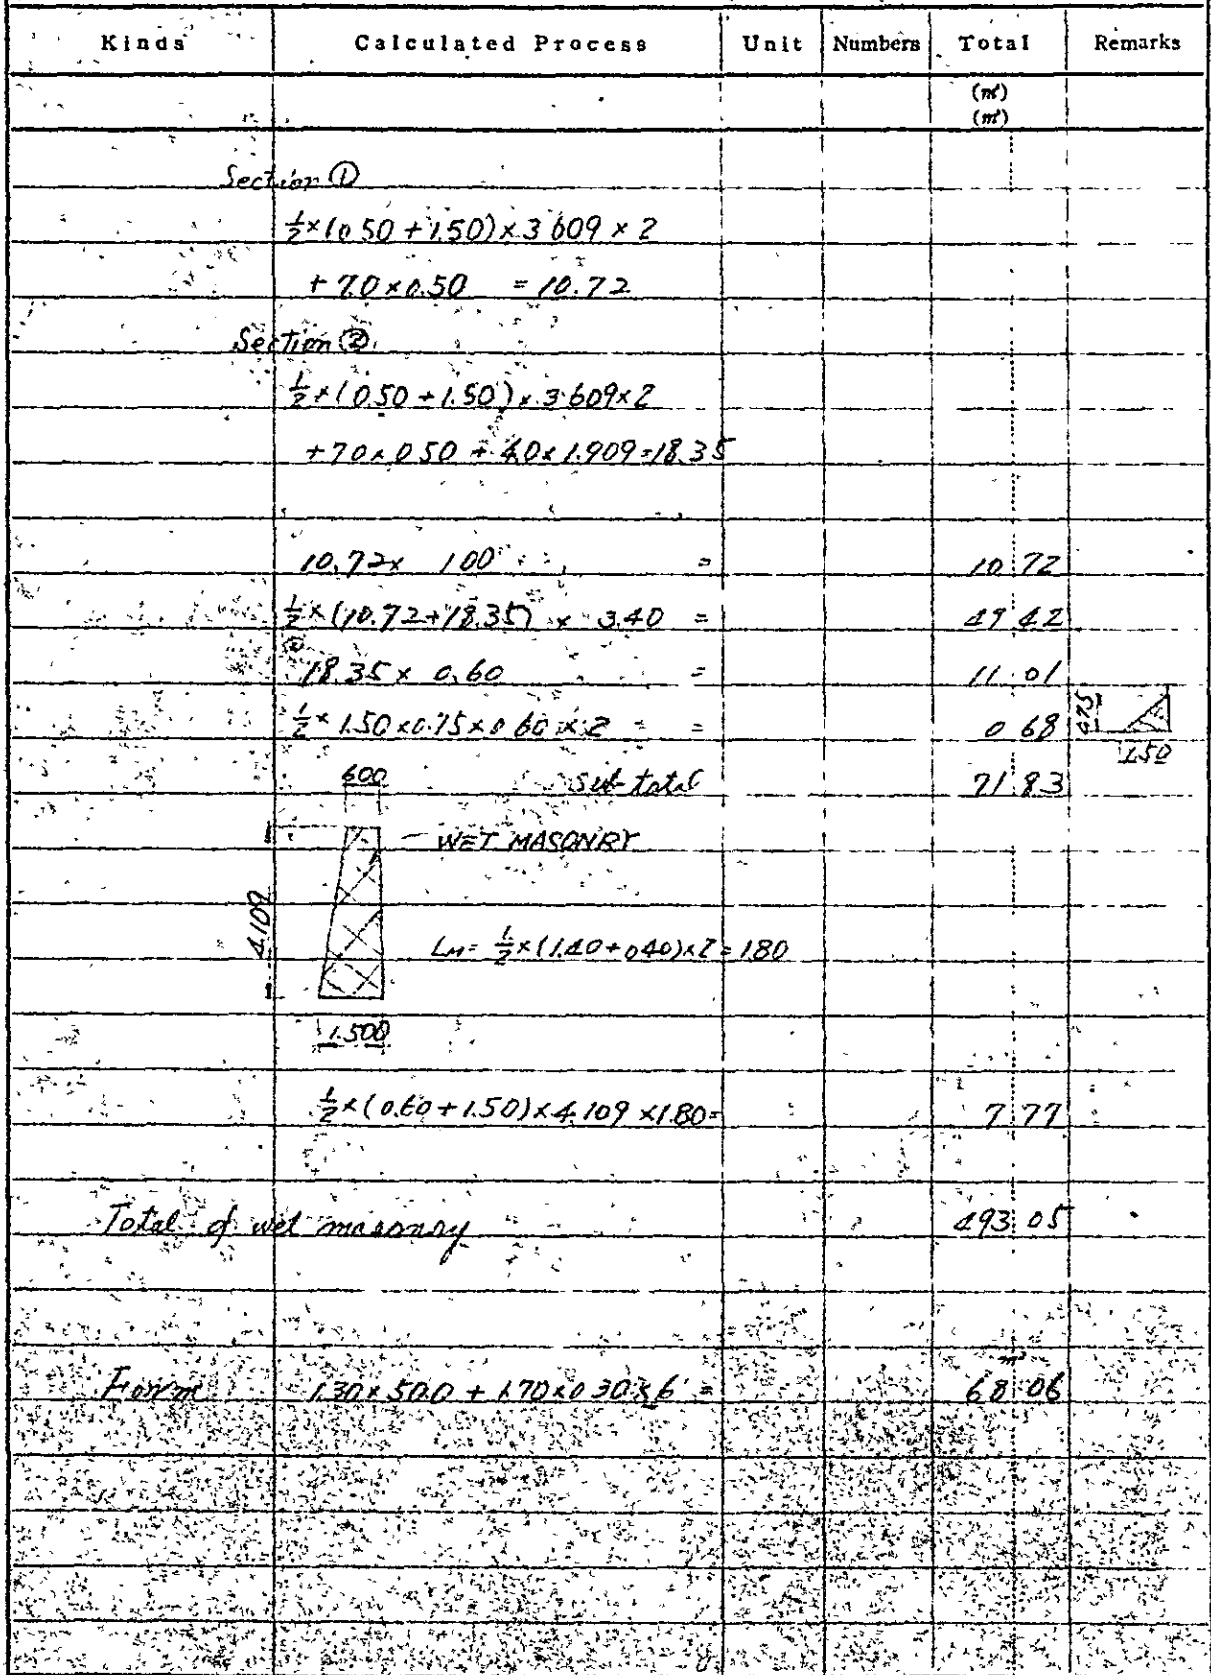 Kinds Calculated Process Unit Numbers Total Remarks
(m³)
(m³)
Section ①
½×(0.50+1.50)×3.609×2
+7.0×0.50 =10.72
Section ②
½×(0.50+1.50)×3.609×2
+7.0×0.50+4.0×1.909=18.35
10.72× 1.00 = 10.72
½×(10.72+18.35)× 3.40 = 49.42
18.35× 0.60 = 11.01
½×1.50×0.75×0.60×2 = 0.68
0.75
1.50
600 Sub-total 71.83
WET MASONRY
4.109
LM=½×(1.40+0.40)×2=1.80
1.500
½×(0.60+1.50)×4.109×1.80= 7.77
Total of wet masonry 493.05
m²
Form 1.30×50.0+1.70×0.30×6= 68.06